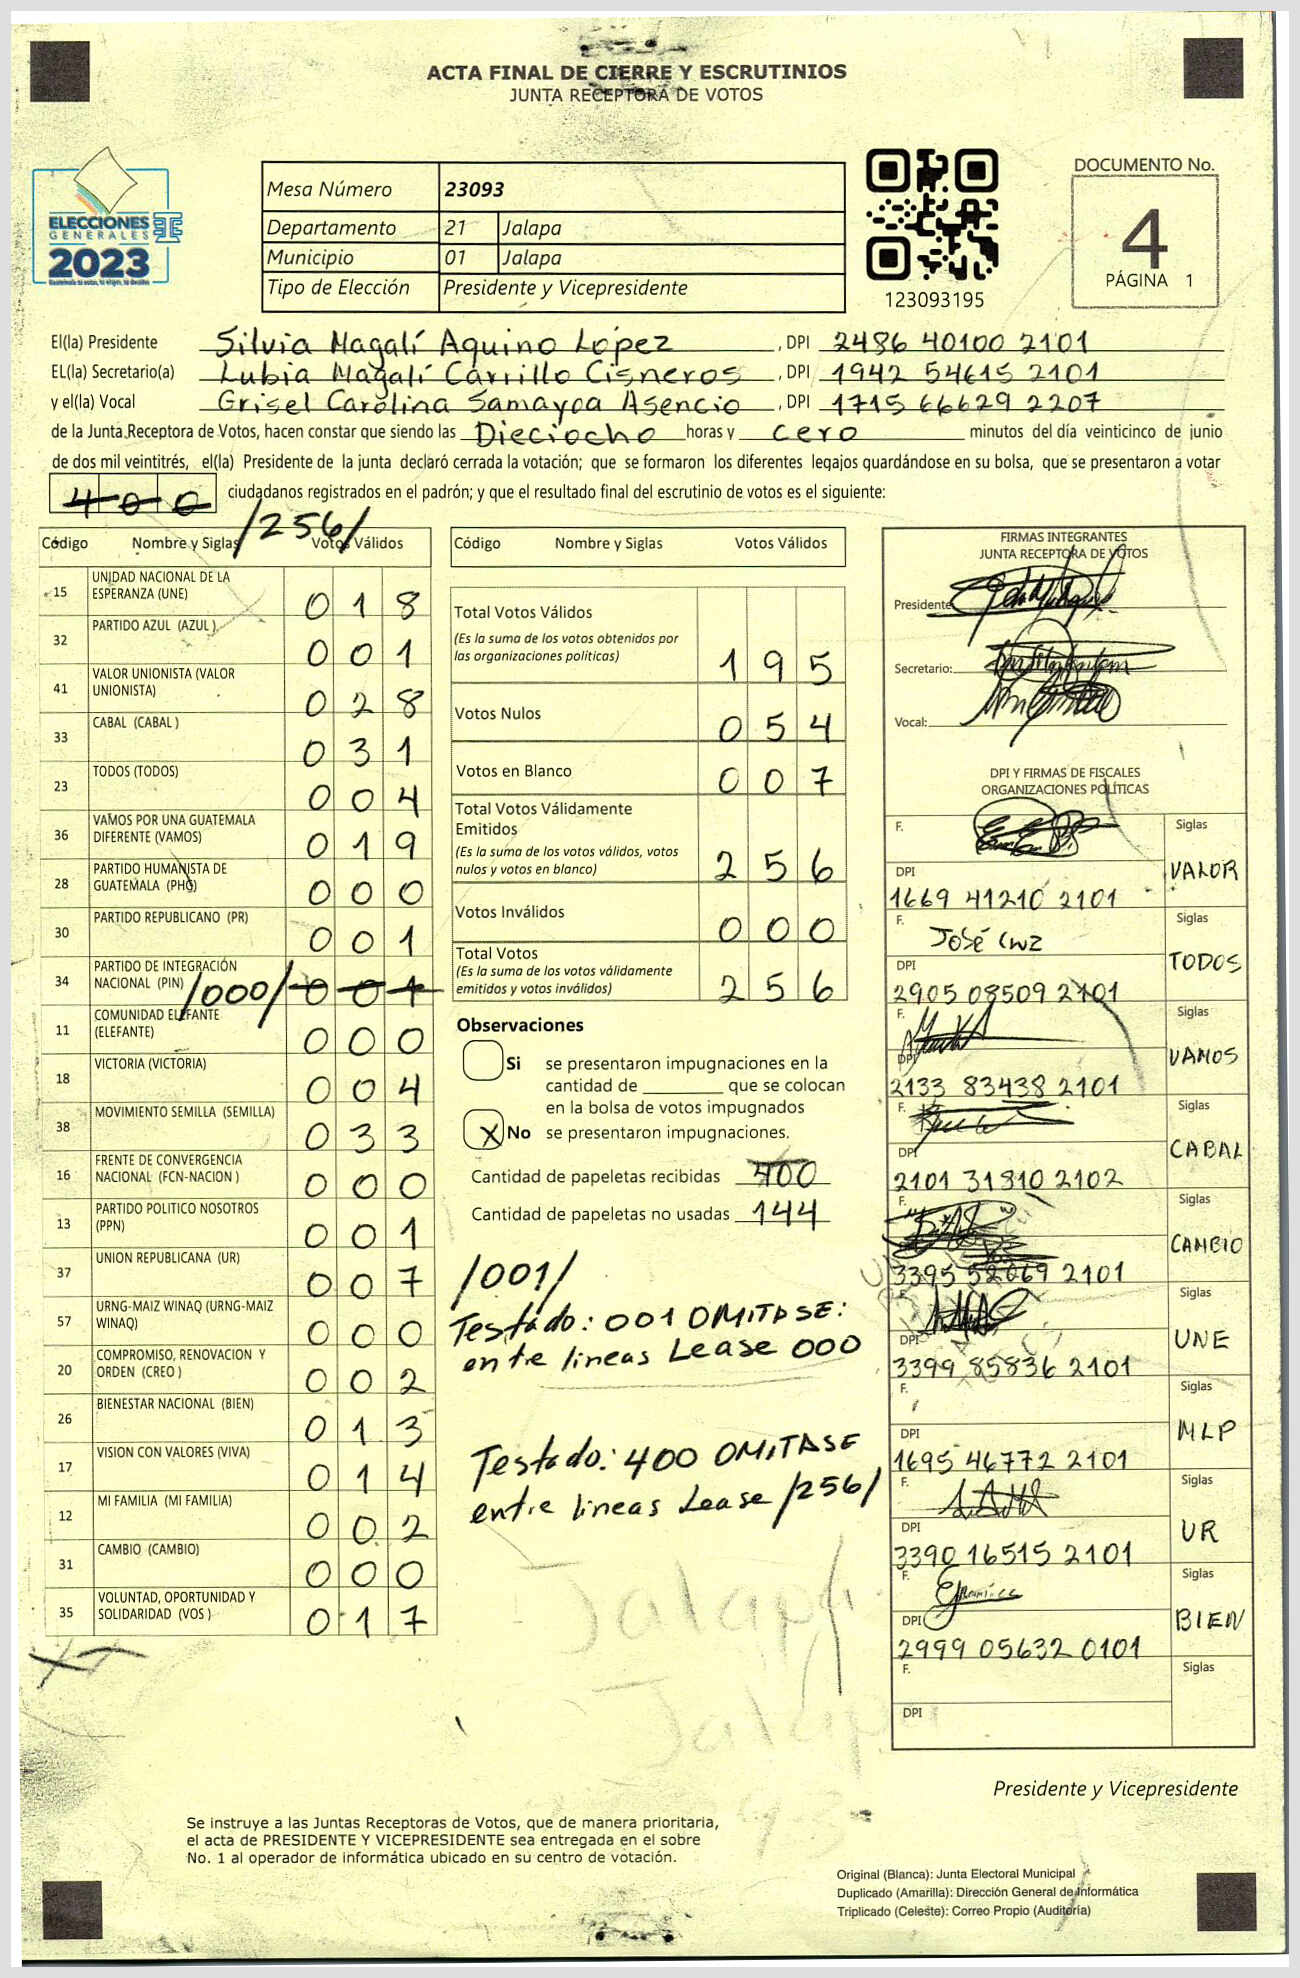 ACTA FINAL DE CIERRE Y ESCRUTINIOS
JUNTA RECEPTORA DE VOTOS
ELECCIONES
GENERALES
2023
Mesa Número 23093
Departamento 21 Jalapa
Municipio 01 Jalapa
Tipo de Elección Presidente y Vicepresidente
123093195
DOCUMENTO No.
4
PÁGINA 1
El(la) Presidente Silvia Magalí Aquino López , DPI 2486 40100 2101
EL(la) Secretario(a) Lubia Magalí Carrillo Cisneros , DPI 1942 54615 2101
y el(la) Vocal Grisel Carolina Samayoa Asencio , DPI 1715 66629 2207
de la Junta Receptora de Votos, hacen constar que siendo las Dieciocho horas y cero minutos del día veinticinco de junio
de dos mil veintitrés, el(la) Presidente de la junta declaró cerrada la votación; que se formaron los diferentes legajos guardándose en su bolsa, que se presentaron a votar
400 ciudadanos registrados en el padrón; y que el resultado final del escrutinio de votos es el siguiente:
/256/
Código Nombre y Siglas Votos Válidos
15 UNIDAD NACIONAL DE LA
ESPERANZA (UNE) 0 1 8
32 PARTIDO AZUL (AZUL ) 0 0 1
41 VALOR UNIONISTA (VALOR
UNIONISTA) 0 2 8
33 CABAL (CABAL ) 0 3 1
23 TODOS (TODOS) 0 0 4
36 VAMOS POR UNA GUATEMALA
DIFERENTE (VAMOS) 0 1 9
28 PARTIDO HUMANISTA DE
GUATEMALA (PHG) 0 0 0
30 PARTIDO REPUBLICANO (PR) 0 0 1
34 PARTIDO DE INTEGRACIÓN
NACIONAL (PIN) /000/ 0 0 1
11 COMUNIDAD ELEFANTE
(ELEFANTE) 0 0 0
18 VICTORIA (VICTORIA) 0 0 4
38 MOVIMIENTO SEMILLA (SEMILLA) 0 3 3
16 FRENTE DE CONVERGENCIA
NACIONAL (FCN-NACION ) 0 0 0
13 PARTIDO POLITICO NOSOTROS
(PPN) 0 0 1
37 UNION REPUBLICANA (UR) 0 0 7
57 URNG-MAIZ WINAQ (URNG-MAIZ
WINAQ) 0 0 0
20 COMPROMISO, RENOVACION Y
ORDEN (CREO ) 0 0 2
26 BIENESTAR NACIONAL (BIEN) 0 1 3
17 VISION CON VALORES (VIVA) 0 1 4
12 MI FAMILIA (MI FAMILIA) 0 0 2
31 CAMBIO (CAMBIO) 0 0 0
35 VOLUNTAD, OPORTUNIDAD Y
SOLIDARIDAD (VOS ) 0 1 7
Código Nombre y Siglas Votos Válidos
Total Votos Válidos
(Es la suma de los votos obtenidos por
las organizaciones políticas) 1 9 5
Votos Nulos 0 5 4
Votos en Blanco 0 0 7
Total Votos Válidamente
Emitidos
(Es la suma de los votos válidos, votos
nulos y votos en blanco) 2 5 6
Votos Inválidos 0 0 0
Total Votos
(Es la suma de los votos válidamente
emitidos y votos inválidos) 2 5 6
Observaciones
Si se presentaron impugnaciones en la
cantidad de ________ que se colocan
en la bolsa de votos impugnados
X No se presentaron impugnaciones.
Cantidad de papeletas recibidas 400
Cantidad de papeletas no usadas 144
/001/
Testado: 001 OMITASE:
entre lineas Lease 000
Testado: 400 OMITASE
entre lineas Lease /256/
Jalapa
Jalapa
FIRMAS INTEGRANTES
JUNTA RECEPTORA DE VOTOS
Presidente
Secretario:
Vocal:
DPI Y FIRMAS DE FISCALES
ORGANIZACIONES POLÍTICAS
F. Siglas
DPI VALOR
1669 41210 2101
F. José Cruz Siglas
DPI TODOS
2905 08509 2101
F. Siglas
DPI VAMOS
2133 83438 2101
F. Siglas
DPI CABAL
2101 31810 2102
F. Siglas
CAMBIO
3395 52069 2101
F. Siglas
DPI UNE
3399 85836 2101
F. Siglas
DPI MLP
1695 46772 2101
F. Siglas
DPI UR
3390 16515 2101
F. Siglas
DPI BIEN
2999 05632 0101
F. Siglas
DPI
Presidente y Vicepresidente
Se instruye a las Juntas Receptoras de Votos, que de manera prioritaria,
el acta de PRESIDENTE Y VICEPRESIDENTE sea entregada en el sobre
No. 1 al operador de informática ubicado en su centro de votación.
Original (Blanca): Junta Electoral Municipal
Duplicado (Amarilla): Dirección General de Informática
Triplicado (Celeste): Correo Propio (Auditoría)